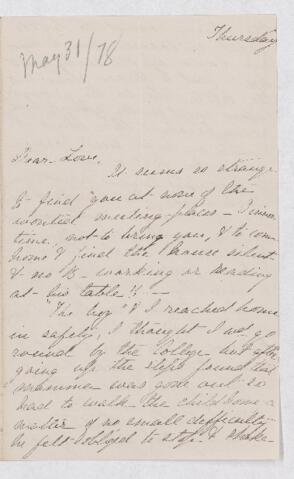 May 31/78
Thursday
Dear Love,
It seems so strange
to find you at none of the
wonted meeting-places – Dinner
time, not to bring you, & to come
home & find the house silent
& no B – working or reading
at his table!! –
"The boy" & I reached home
in safety, I thought I wd go
round by the College but after
going up the steps found that
was gone out so
had to walk the child home a
matter of no small difficulty
he felt obliged to stop & shake